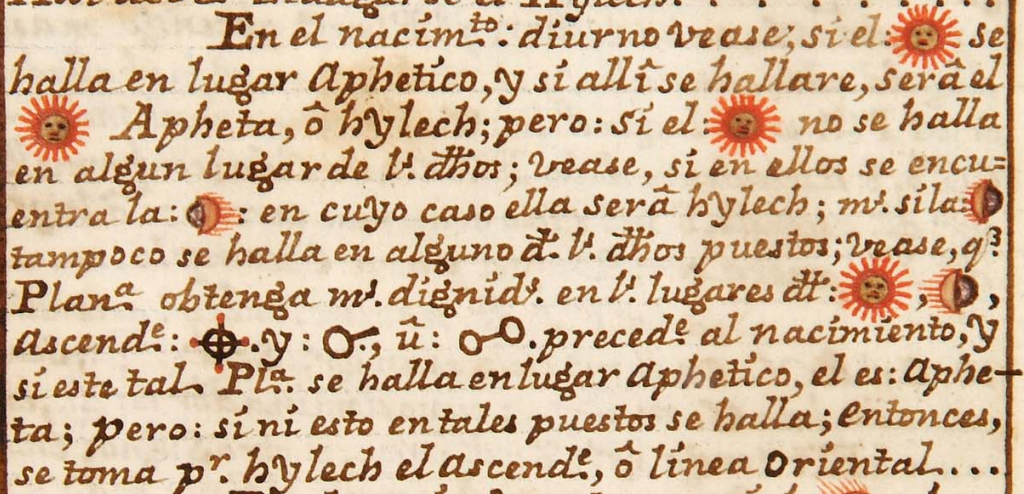 En el nacim.to: diurno vease, si el: ☉ se
halla en lugar Aphetico, y si allî se hallare, serâ el
☉ Apheta, ô hylech; pero: si el: ☉ no se halla
en algun lugar de l.s dhos; vease, si en ellos se encu=
entra la: ☽: en cuyo caso ella serâ hylech; m.s si la: ☽
tampoco se halla en alguno d. l.s dhos puestos; vease, q.e
Plan.a obtenga m.s dignid.s. en l.s lugares dt: ☉, ☽,
ascend.e: ⊕. y: ☌, û: ☍. preced.e al nacimiento, y
si este tal Pl.a se halla en lugar Aphetico, el es: Aphe-
ta; pero: si ni esto en tales puestos se halla; entonces,
se toma p.r hylech el ascend.e, ô linea Oriental...